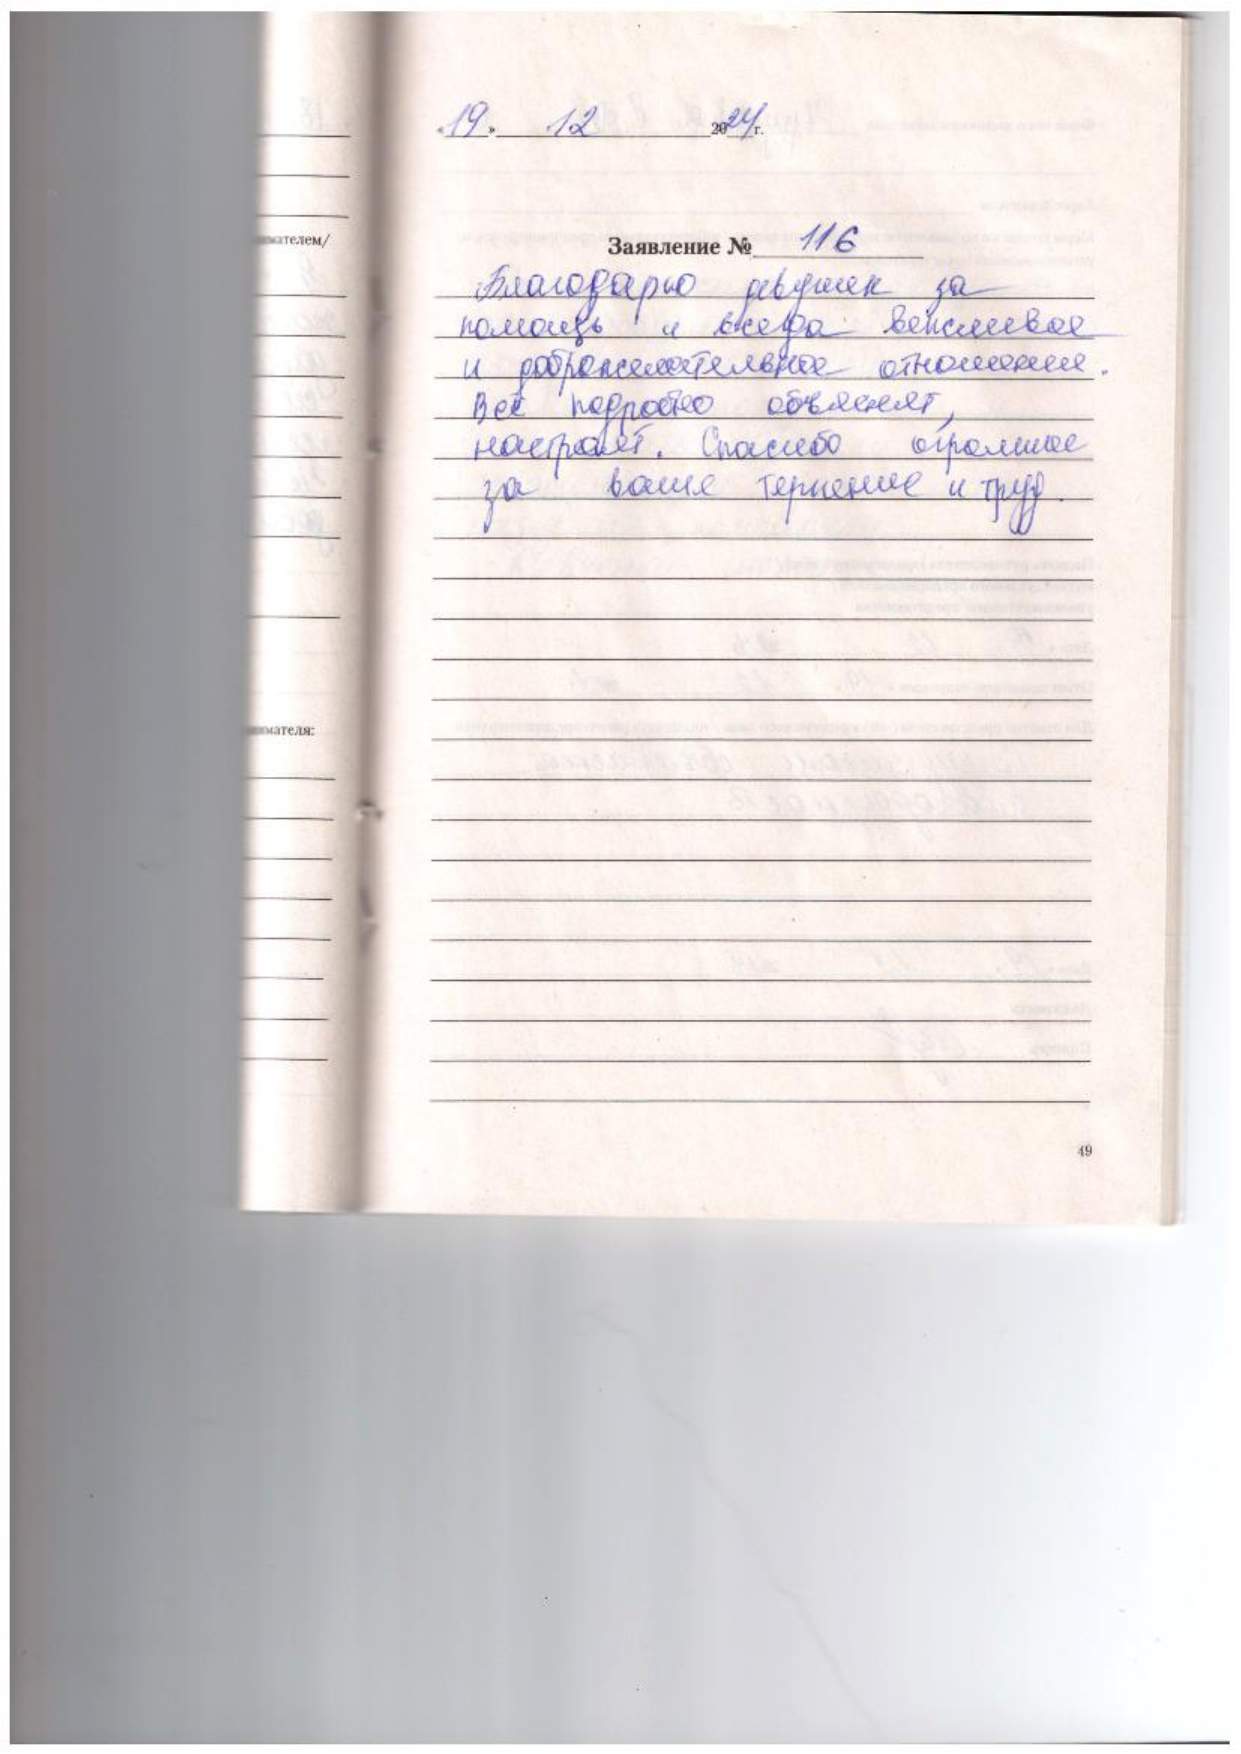 «19» 12 2024 г.
нимателем/
Заявление № 116
Благодарю девушек за
помощь и всегда вежливое
и доброжелательное отношение.
Всё подробно объяснят,
настроят. Спасибо огромное
за ваше терпение и труд.
нимателя:
49